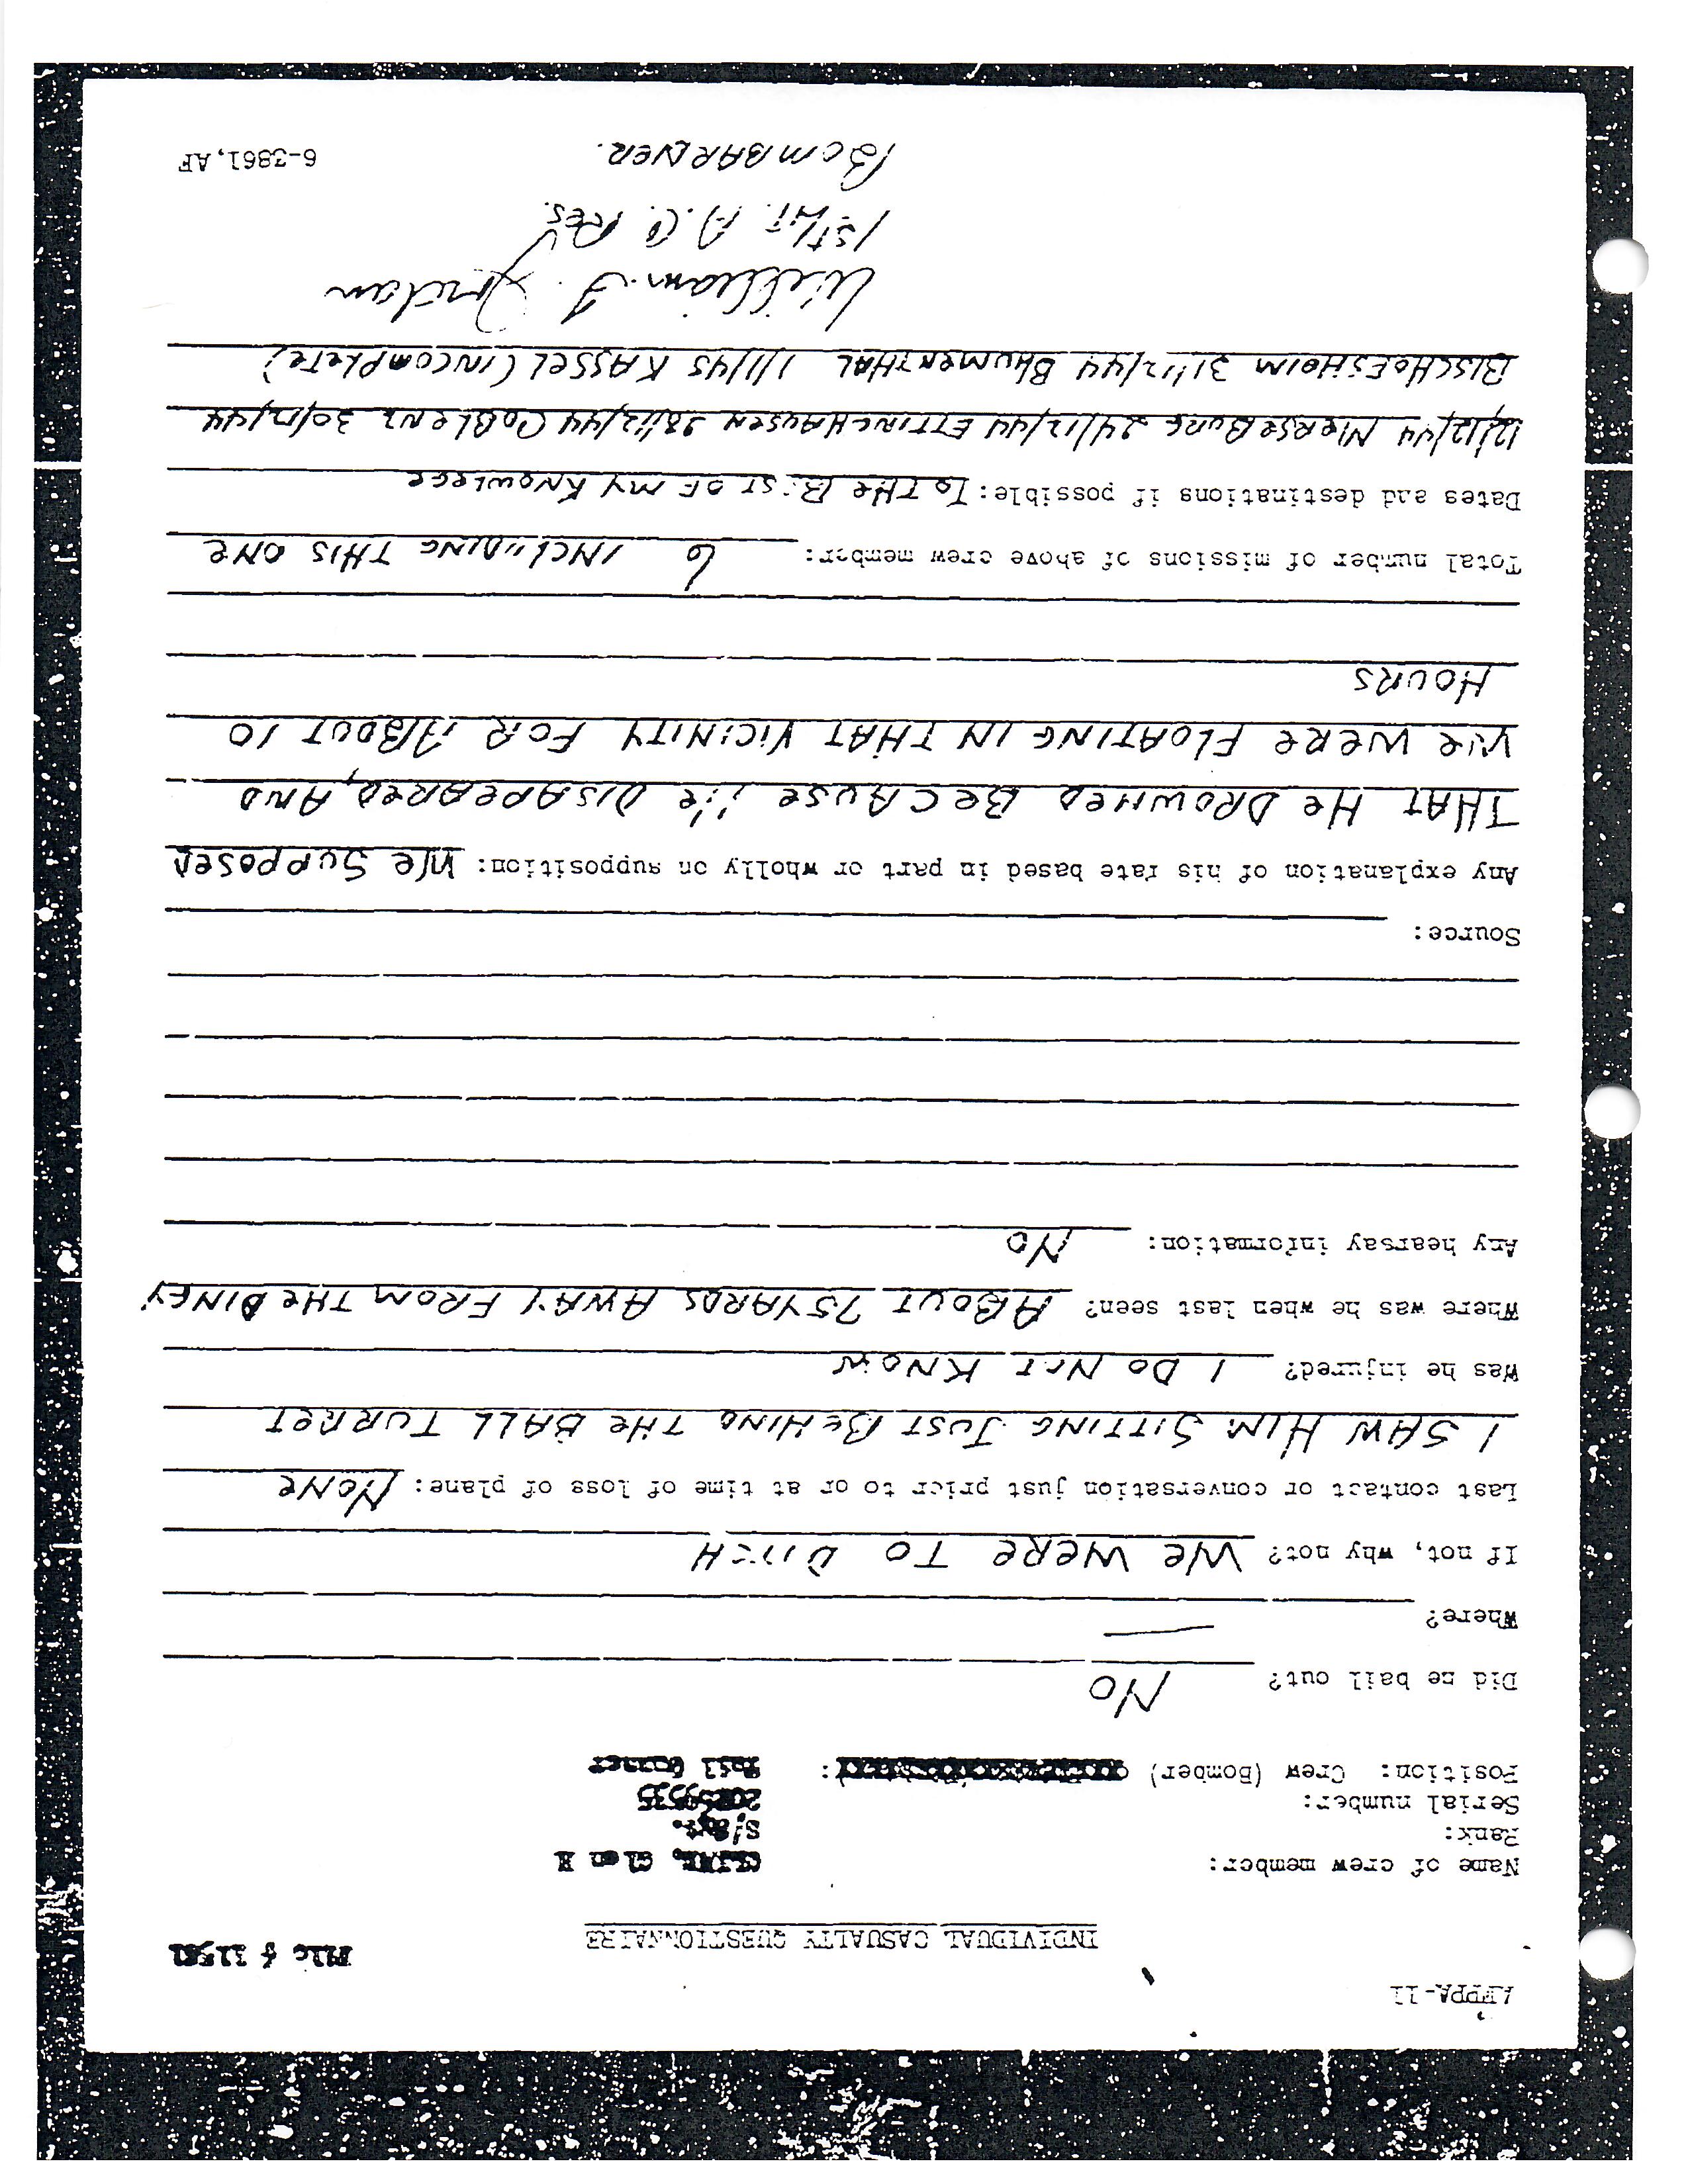 AFPPA-11
INDIVIDUAL CASUALTY QUESTIONNAIRE
Name of crew member: Glen H
Rank: S/Sgt.
Serial number:
Position: Crew (Bomber) : Tail Gunner
Did he bail out? NO
Where? —
If not, why not? WE WERE TO DITCH
Last contact or conversation just prior to or at time of loss of plane: NONE
I SAW HIM SITTING JUST BEHIND THE BALL TURRET
Was he injured? I DO NOT KNOW
Where was he when last seen? ABOUT 75 YARDS AWAY FROM THE DINGY
Any hearsay information: NO
Source:
Any explanation of his fate based in part or wholly on supposition: WE SUPPOSED
THAT HE DROWNED BECAUSE HE DISAPEARED, AND
WE WERE FLOATING IN THAT VICINITY FOR ABOUT 10
HOURS
Total number of missions of above crew member: 6 INCLUDING THIS ONE
Dates and destinations if possible: TO THE BEST OF MY KNOWLEGE
12/12/44 MERSEBURG 24/12/44 ETTINGHAUSEN 28/12/44 COBLENZ 30/12/44
BISCHOFSHEIM 31/12/44 BLUMENTHAL 1/1/45 KASSEL (INCOMPLETE)
William J.
1ST LT. A.C. RES.
BOMBARDIER.
6-3861, AF